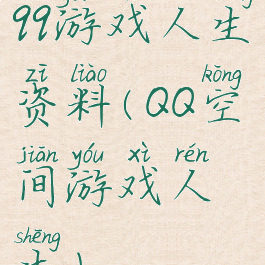 99游戏人生
zī liào kōng
资料(QQ空
jiān yóu xì rén
间游戏人
shēng
生)